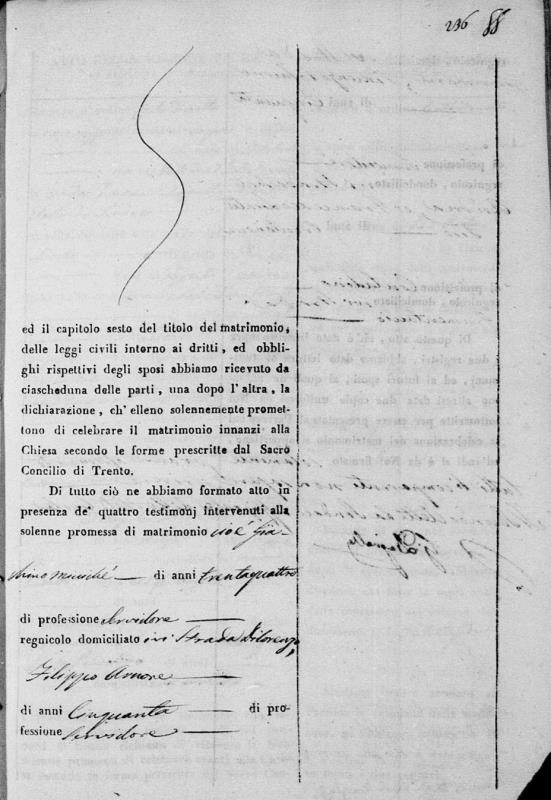 236
ed il capitolo sesto del titolo del matrimonio,
delle leggi civili intorno ai dritti, ed obbli-
ghi rispettivi degli sposi abbiamo ricevuto da
ciascheduna delle parti, una dopo l'altra, la
dichiarazione, ch'elleno solennemente promet-
tono di celebrare il matrimonio innanzi alla
Chiesa secondo le forme prescritte dal Sacro
Concilio di Trento.
Di tutto ciò ne abbiamo formato atto in
presenza de' quattro testimonj intervenuti alla
solenne promessa di matrimonio cioè Gia-
chino di anni trentaquattro
di professione Servidore
regnicolo domiciliato in Strada
Filippo Amore
di anni Cinquanta di pro-
fessione Servidore